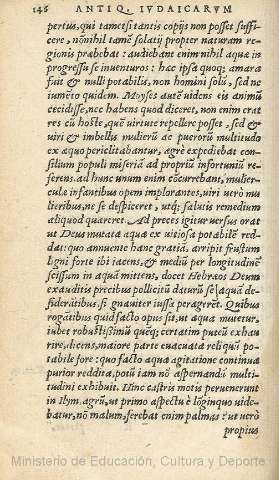 146 ANTIQ. IVDAICARVM
pertus, qui tametsi tantis copijs non posset suffi-
cere, nõnihil tamẽ solatij propter naturam re-
gionis præbebat: audiebant enim nihil aquæ in
progressu se inuenturos: hæc ipsa quoq; amara
fuit & nulli potabilis, non homini solũ, sed ne
iumẽto quidem. Moyses autẽ uidens eis animũ
cecidisse, nec habens quod diceret, non enim erat
res cũ hoste, quẽ uirtute repellere posset, sed &
uiri & imbellis mulierũ ac puerorũ multitudo
ex æquo periclitabantur, ægrè expediebat con-
silium populi miseriã ad propriũ infortuniũ re-
ferens. ad hunc unum enim cõcurrebant, mulier-
culæ infantibus opem implorantes, uiri uerò mu
lieribus, ne se despiceret, utq; salutis remedium
aliquod quæreret. Ad preces igitur uersus orat
ut Deus mutata aqua ex uitiosa potabilẽ red-
dat: quo annuente hanc gratiã, arripit frustum
ligni forte ibi iacens, & mediũ per longitudinẽ
scissum in aquã mittens, docet Hebræos Deum
exauditis precibus pollicitũ daturũ se aquã de-
siderãtibus, si gnauiter iussa peragerẽt. Quibus
rogãtibus quid facto opus sit, ut aqua mutetur,
iubet robustissimũ quẽq; certatim puteũ exhau
rire, dicens, maiore parte euacuata reliquã po-
tabile fore: quo facto aqua agitatione continua
purior reddita, potũ iam nõ aspernandũ multi-
tudini exhibuit. Hinc castris motis peruenerunt
in Ilym. agrũ, ut primo aspectu è lõginquo uide-
batur, nõ malum, ferebat enim palmas: ut uerò
propius
Ministerio de Educación, Cultura y Deporte